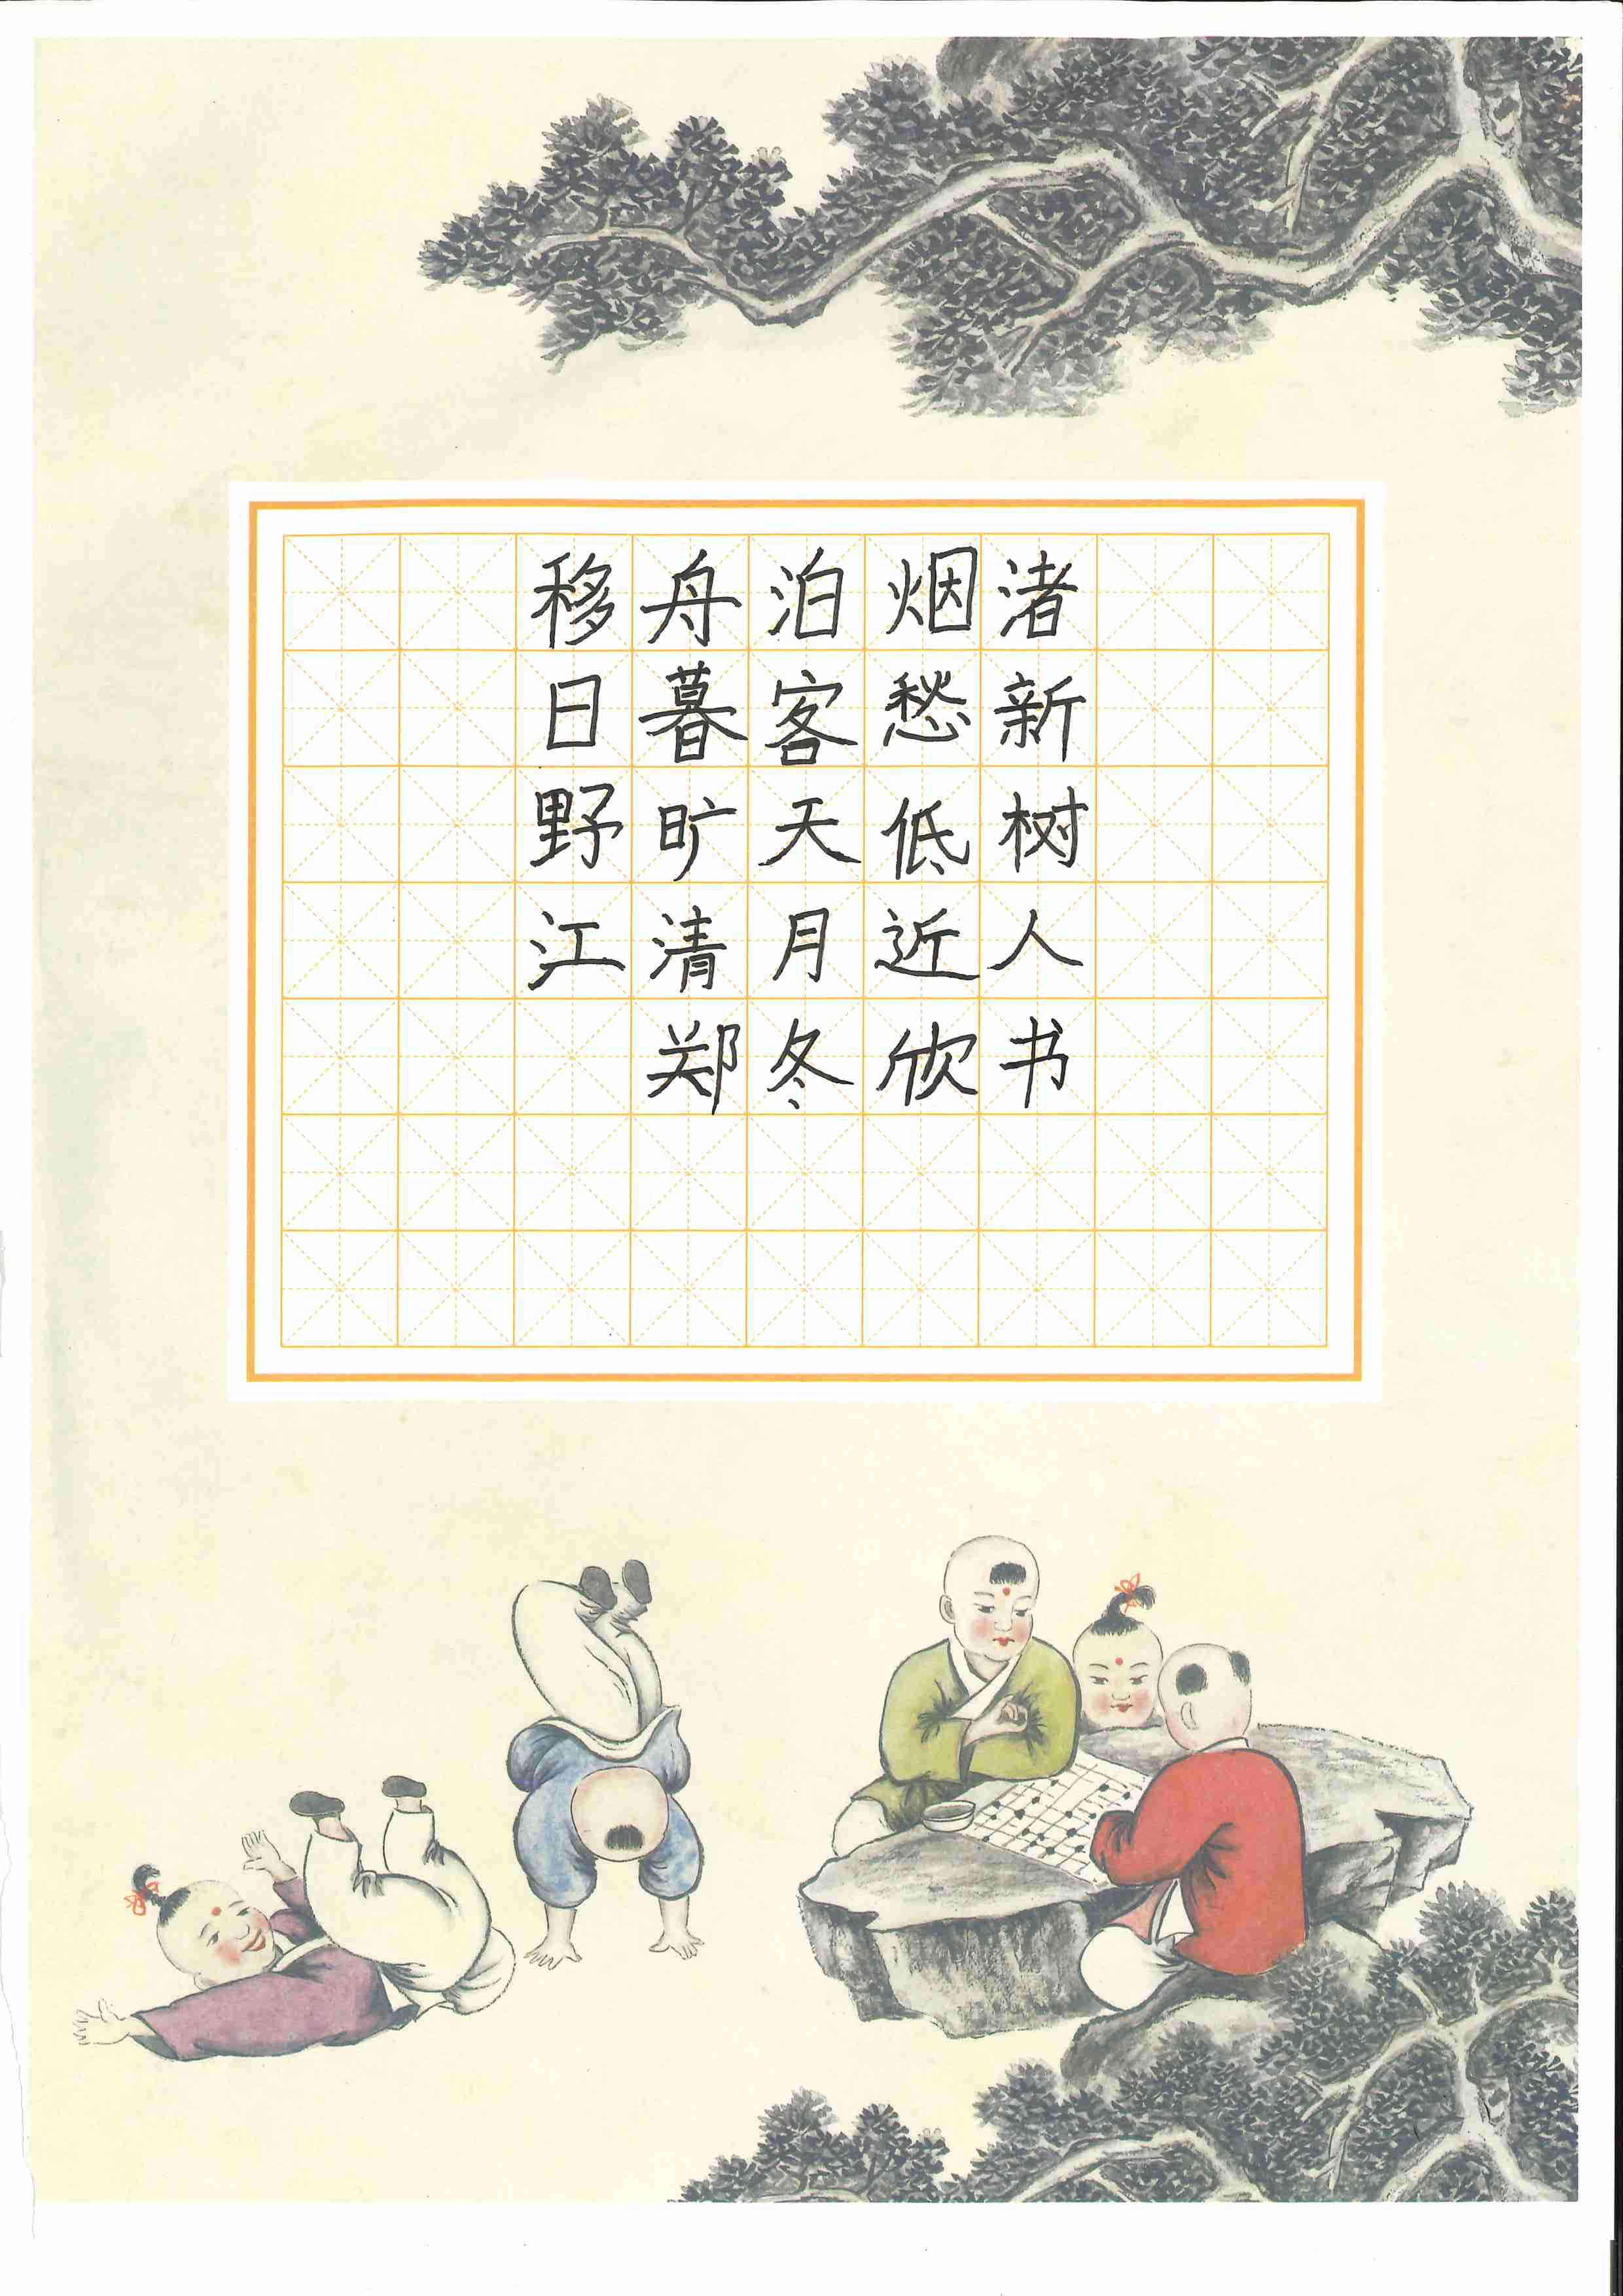 移舟泊烟渚
日暮客愁新
野旷天低树
江清月近人
郑冬欣书